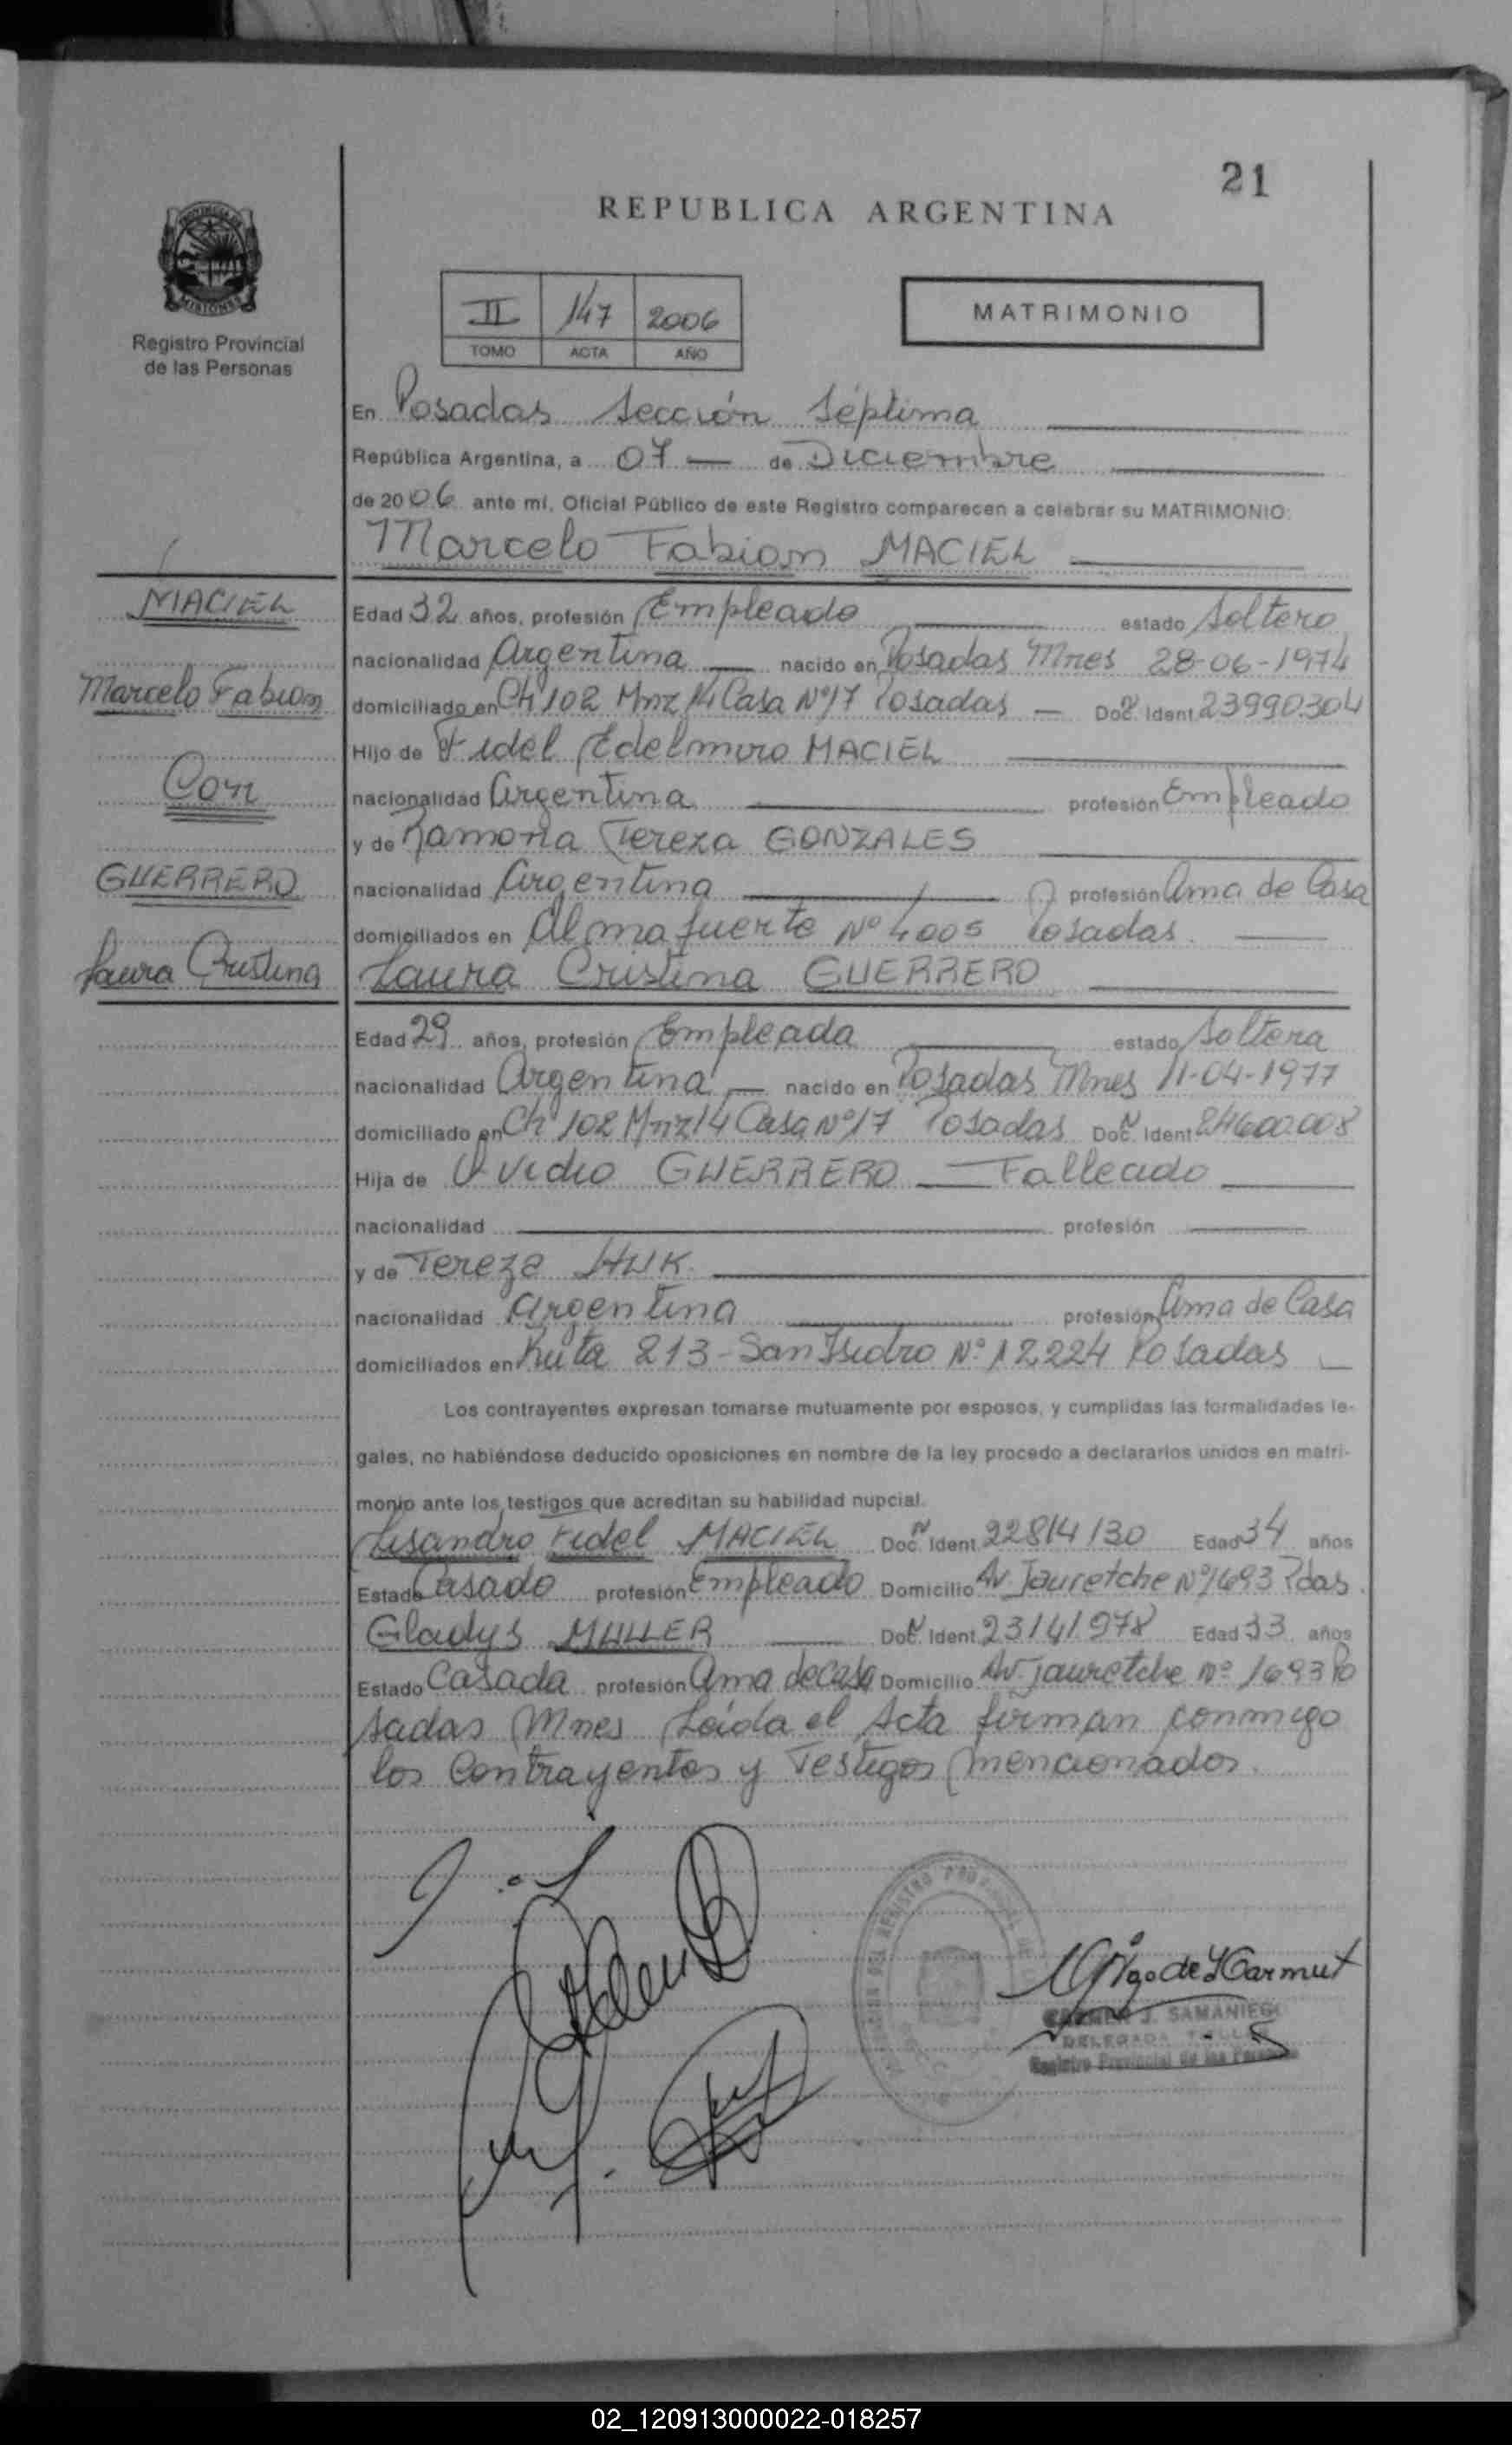 21
REPUBLICA ARGENTINA
PROVINCIA DE
MISIONES
Registro Provincial
de las Personas
II 147 2006
TOMO ACTA AÑO
MATRIMONIO
En Posadas Sección Séptima
República Argentina, a 07 — de Diciembre
de 2006 ante mí, Oficial Público de este Registro comparecen a celebrar su MATRIMONIO:
Marcelo Fabian MACIEL
MACIEL
Marcelo Fabian
Con
GUERRERO
Laura Cristina
Edad 32 años, profesión Empleado estado Soltero
nacionalidad Argentina — nacido en Posadas Mnes 28-06-1974
domiciliado en Ch 102 Mnz 14 Casa Nº17 Posadas — Doc. Ident. 23990304
Hijo de Fidel Edelmiro MACIEL
nacionalidad Argentina profesión Empleado
y de Ramona Tereza GONZALES
nacionalidad Argentina profesión Ama de Casa
domiciliados en Almafuerte Nº 4005 Posadas —
Laura Cristina GUERRERO
Edad 29 años, profesión Empleada estado Soltera
nacionalidad Argentina — nacido en Posadas Mnes 11-04-1977
domiciliado en Ch 102 Mnz 14 Casa Nº17 Posadas Doc. Ident. 24600008
Hija de Ovidio GUERRERO — Fallecido
nacionalidad profesión
y de Tereza HUK
nacionalidad Argentina profesión Ama de Casa
domiciliados en Ruta 213-San Isidro Nº 12224 Posadas —
Los contrayentes expresan tomarse mutuamente por esposos, y cumplidas las formalidades le-
gales, no habiéndose deducido oposiciones en nombre de la ley procedo a declararlos unidos en matri-
monio ante los testigos que acreditan su habilidad nupcial.
Lisandro Fidel MACIEL Doc. Ident. 22814130 Edad 34 años
Estado Casado profesión Empleado Domicilio Av. Jauretche Nº1693 Pdas.
Gladys MULLER Doc. Ident. 23141978 Edad 33 años
Estado Casada profesión Ama de casa Domicilio Av Jauretche Nº 1693 Po
sadas Mnes Leída el Acta firman conmigo
los Contrayentes y Testigos mencionados.
J. SAMANIEGO
DELEGADA
Registro Provincial de las Personas
02_120913000022-018257